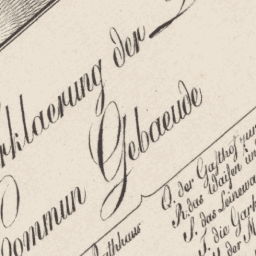 Erklaerung der
Commun Gebaeude
Rathhaus
Q. der Gasthof zur
R. das Waisen
S. das Leinewa
T. die Gark
der M